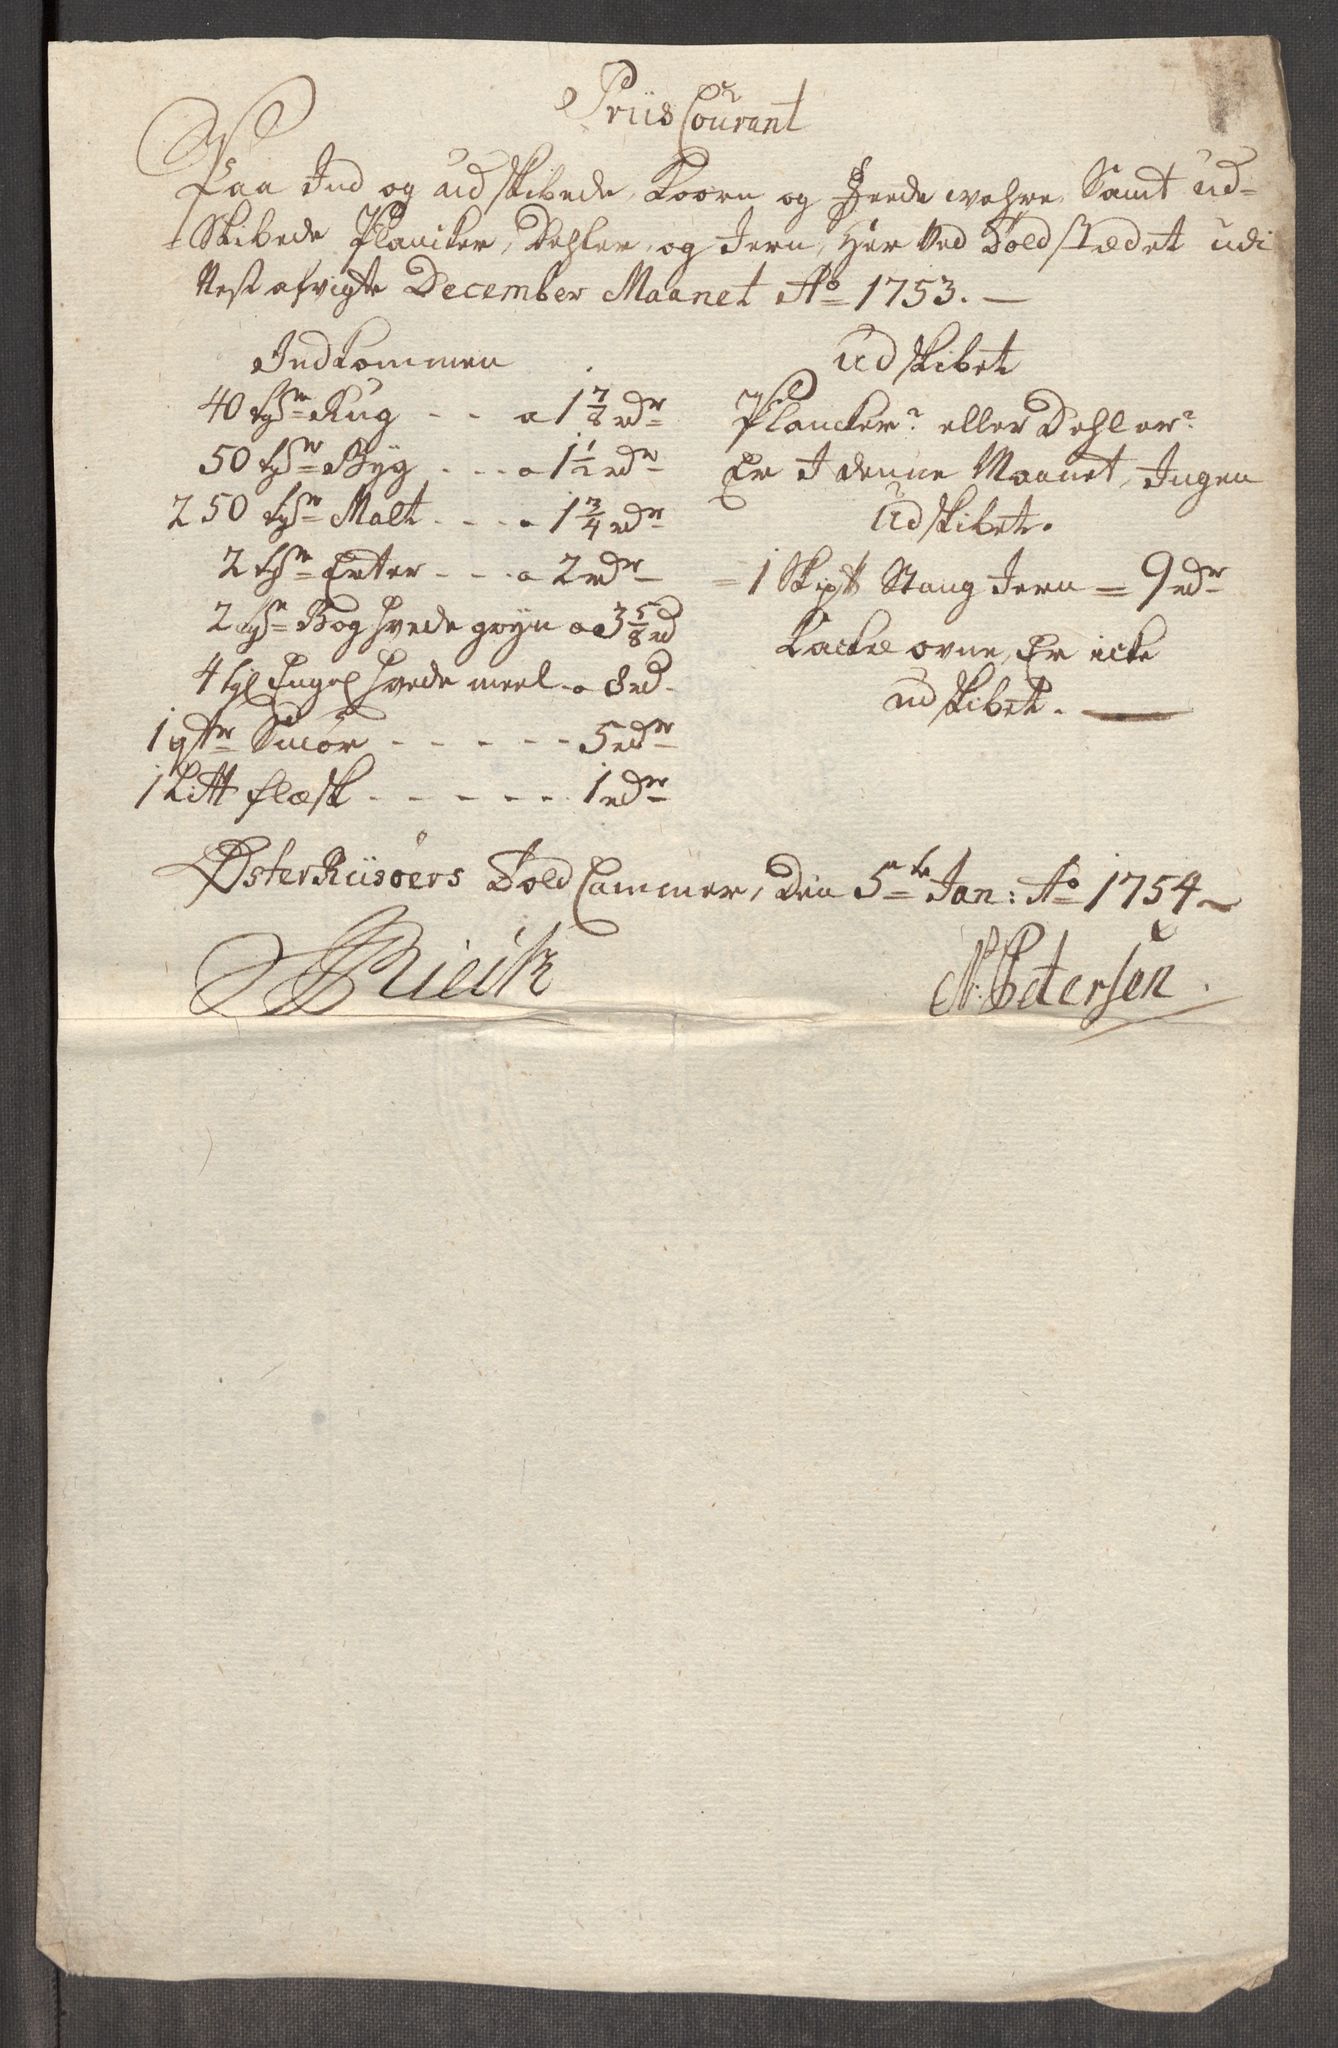 Priis Courant
Paa Ind og udskibede Koorn og Feede wahre, Samt ud-
Skibede Plancker, Dehler, og Jern, Her Ved Toldstædet udi
Nest afvigte December Maanet Ao 1753. —
Indkommen
40 tr Rug - - a 1 7/8 rdr
50 tr Byg - - - a 1 1/2 rdr
250 tr Malt - - - a 1 3/4 rdr
2 tr Erter - - - a 2 rdr
2 tr Boghvede gryn a 3 5/8 rd
4 Engel hvede meel a 8 rd
1 Smør - - - - - 5 rdr
1 flæsk - - - - - - 1 rdr
Udskibet
Plancker eller Dehler
Er I denne Maanet, Ingen
Udskibet.
= 1 Skip Stang Jern = 9 rdr
Kackel ovne, Er icke
udskibet. —
ØsterRiisøers Told Cammer, den 5te Jan: Ao 1754
N: Petersen.